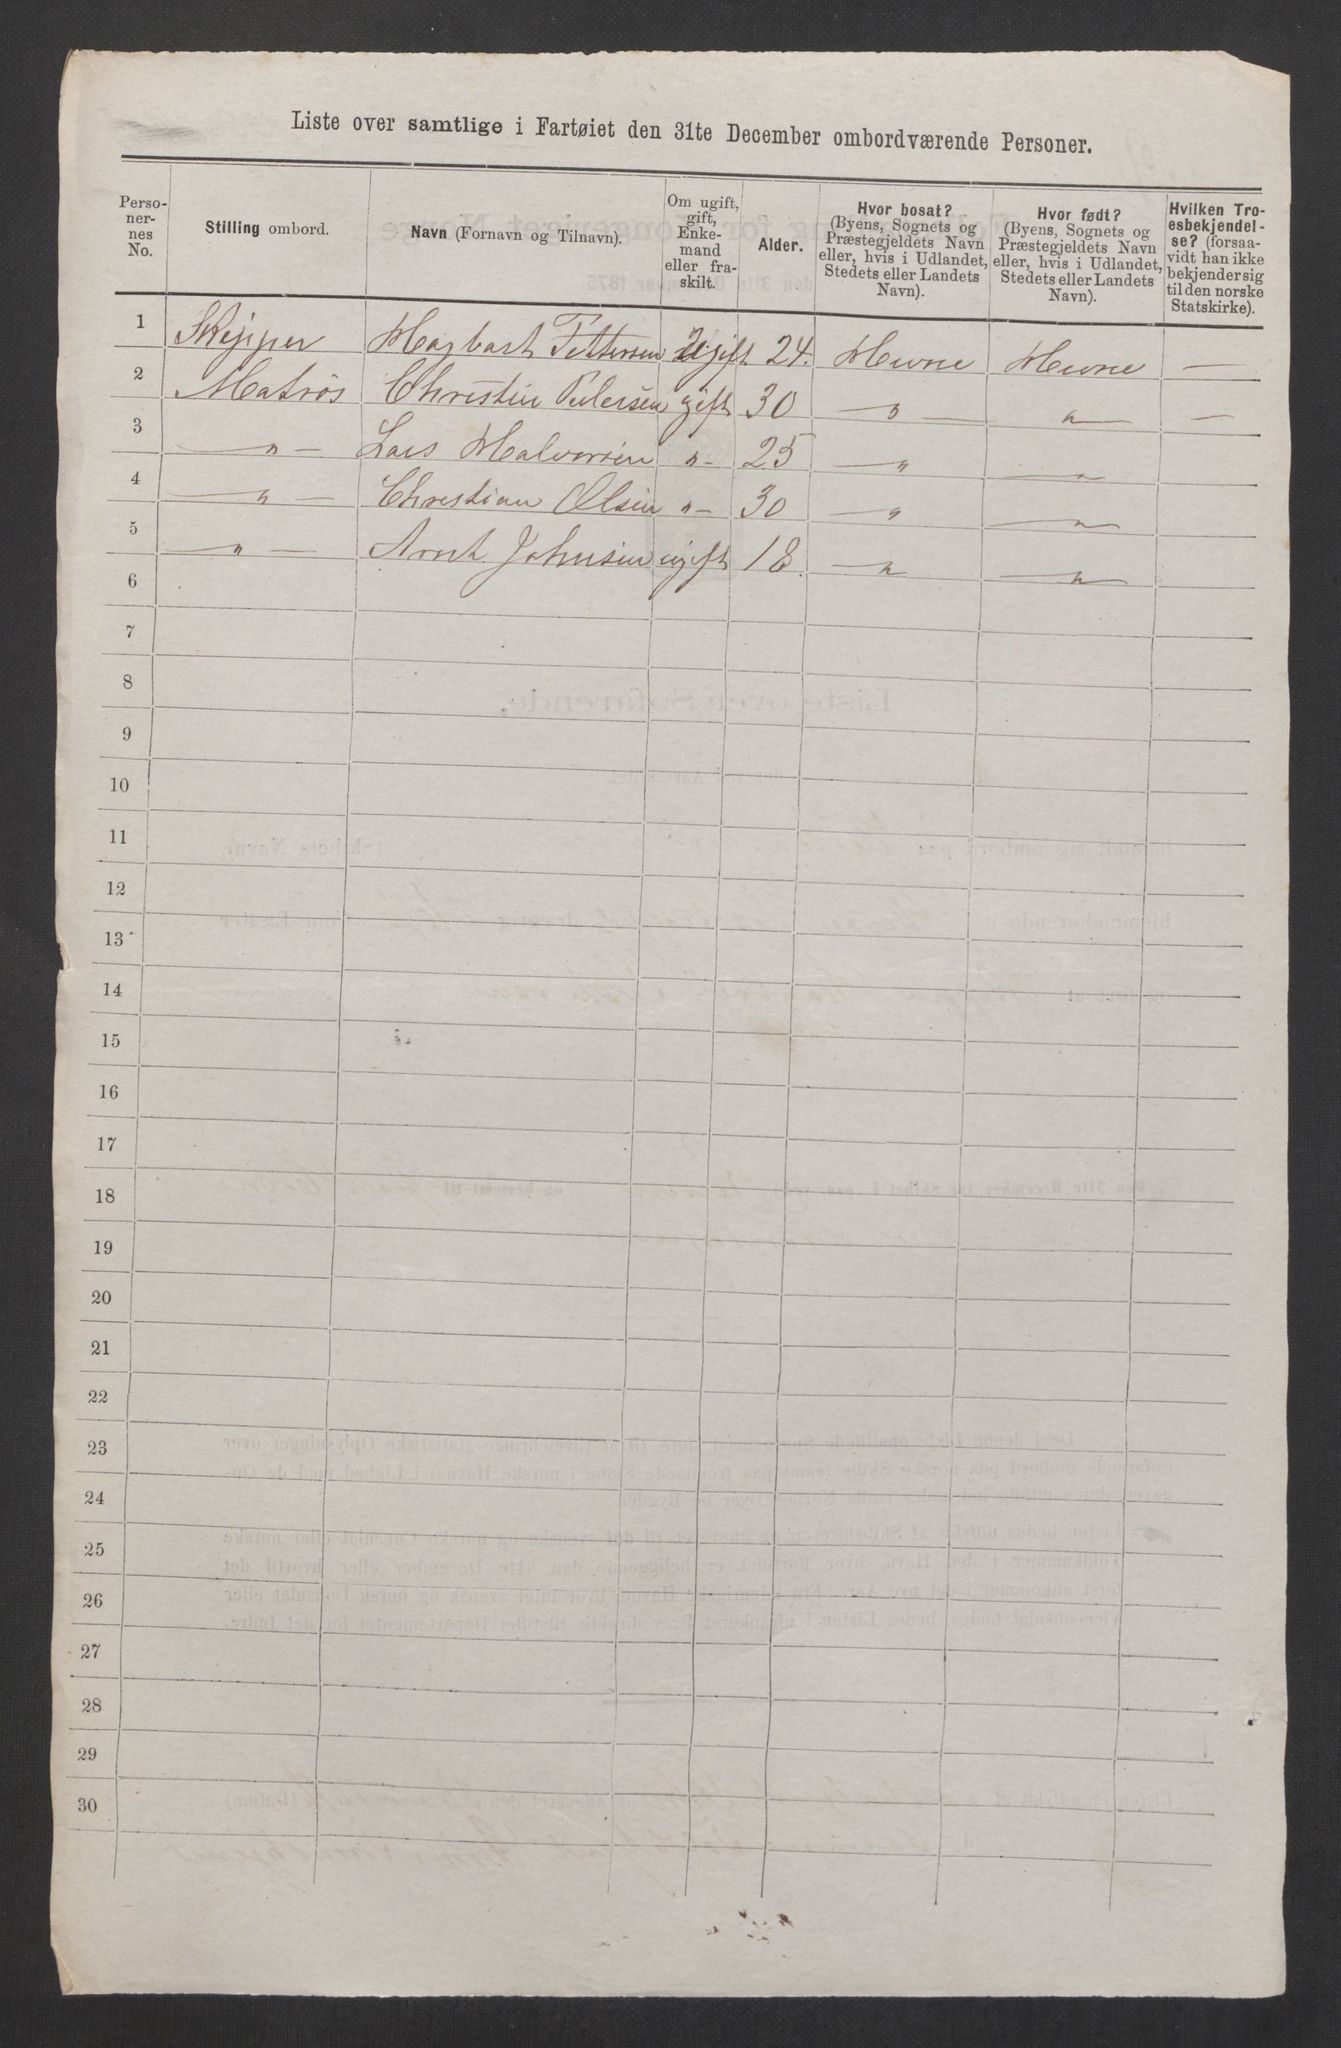 Liste over samtlige i Fartøiet den 31te December ombordværende Personer.
Perso-
ner-
nes
No.
Stilling ombord.
Navn (Fornavn og Tilnavn).
Om ugift,
gift,
Enke-
mand
eller fra-
skilt.
Alder.
Hvor bosat?
(Byens, Sognets og
Præstegjeldets Navn
eller, hvis i Udlandet,
Stedets eller Landets
Navn).
Hvor født?
(Byens, Sognets og
Præstegjeldets Navn
eller, hvis i Udlandet,
Stedets eller Landets
Navn).
Hvilken Tro-
esbekjendel-
se? (forsaa-
vidt han ikke
bekjender sig
til den norske
Statskirke).
1 Skipper Hagbart Pettersen Ugift 24. Hevne Hevne —
2 Matrós Christen Pedersen gift 30 — „ — — „ — —
3 — „ — Lars Halvorsen „ — 25 — „ — „ —
4 — „ — Christian Olsen „ — 30 — „ — — „ —
5 — „ — Arnt Johnsen ugift 18. — „ — „ —
6
7
8
9
10
11
12
13
14
15
16
17
18
19
20
21
22
23
24
25
26
27
28
29
30